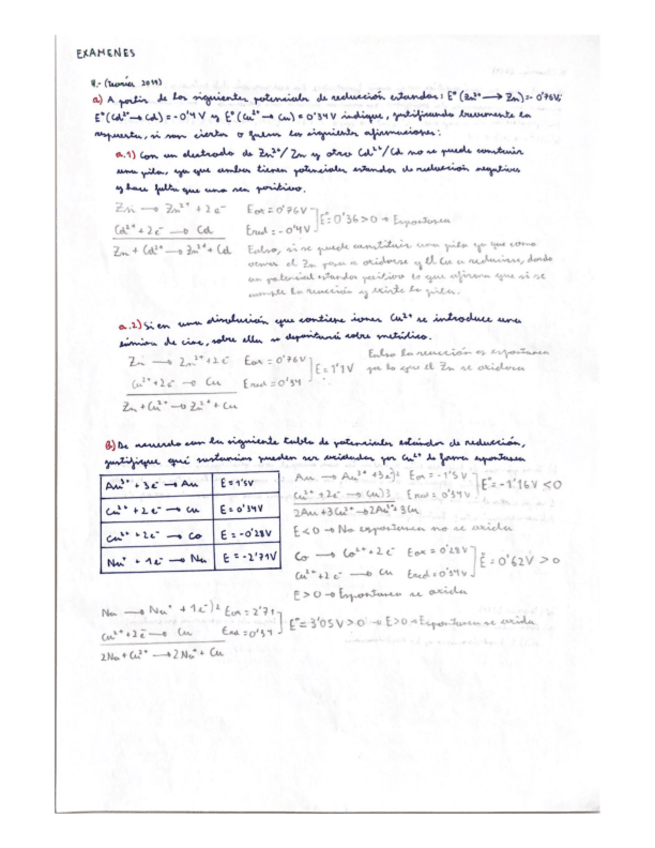 EXAMENES
4.- (Teoría 2019)
a) A partir de los siguientes potenciales de reducción estandar: E°(Zn²⁺ → Zn) = -0'76V;
E°(Cd²⁺ → Cd) = -0'4 V y E°(Cu²⁺ → Cu) = 0'34V indique, justificando brevemente la
respuesta, si son ciertas o falsas las siguientes afirmaciones:
a.1) Con un electrodo de Zn²⁺/Zn y otro Cd²⁺/Cd no se puede construir
una pila, ya que ambos tienen potenciales estandar de reducción negativos
y hace falta que uno sea positivo.
Zn → Zn²⁺ + 2e⁻ Eox = 0'76V
Cd²⁺ + 2e⁻ → Cd Ered = -0'4V
E° = 0'36 > 0 → Espontanea
Zn + Cd²⁺ → Zn²⁺ + Cd
Falso, si se puede construir una pila ya que como
vemos el Zn pasa a oxidarse y el Cu a reducirse, dando
un potencial estandar positivo lo que afirma que si se
cumple la reacción y existe la pila.
a.2) Si en una disolución que contiene iones Cu²⁺ se introduce una
lámina de cinc, sobre ella se depositará cobre metálico.
Zn → Zn²⁺ + 2e⁻ Eox = 0'76V
Cu²⁺ + 2e⁻ → Cu Ered = 0'34
E = 1'1V
Zn + Cu²⁺ → Zn²⁺ + Cu
Falso la reacción es espontanea
por lo que el Zn se oxidara
B) De acuerdo con la siguiente tabla de potenciales estándar de reducción,
justifique qué sustancias pueden ser oxidadas por Cu²⁺ de forma espontanea
Au³⁺ + 3e⁻ → Au E = 1'5V
Cu²⁺ + 2e⁻ → Cu E = 0'34V
Co²⁺ + 2e⁻ → Co E = -0'28V
Na⁺ + 1e⁻ → Na E = -2'71V
Au → Au³⁺ + 3e⁻)2 Eox = -1'5V
(Cu²⁺ + 2e⁻ → Cu)3 Ered = 0'34V
E° = -1'16V < 0
2Au + 3Cu²⁺ → 2Au³⁺ + 3Cu
E < 0 → No espontanea no se oxida
Co → Co²⁺ + 2e⁻ Eox = 0'28V
Cu²⁺ + 2e⁻ → Cu Ered = 0'34V
E° = 0'62V > 0
E > 0 → Espontanea se oxida
Na → Na⁺ + 1e⁻)2 Eox = 2'71
Cu²⁺ + 2e⁻ → Cu Ered = 0'34
E° = 3'05V > 0 → E > 0 → Espontanea se oxida
2Na + Cu²⁺ → 2Na⁺ + Cu